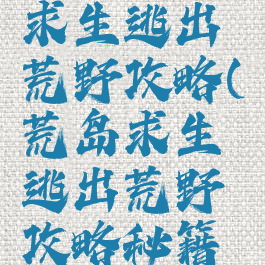 求生逃出
荒野攻略(
荒岛求生
逃出荒野
攻略秘籍